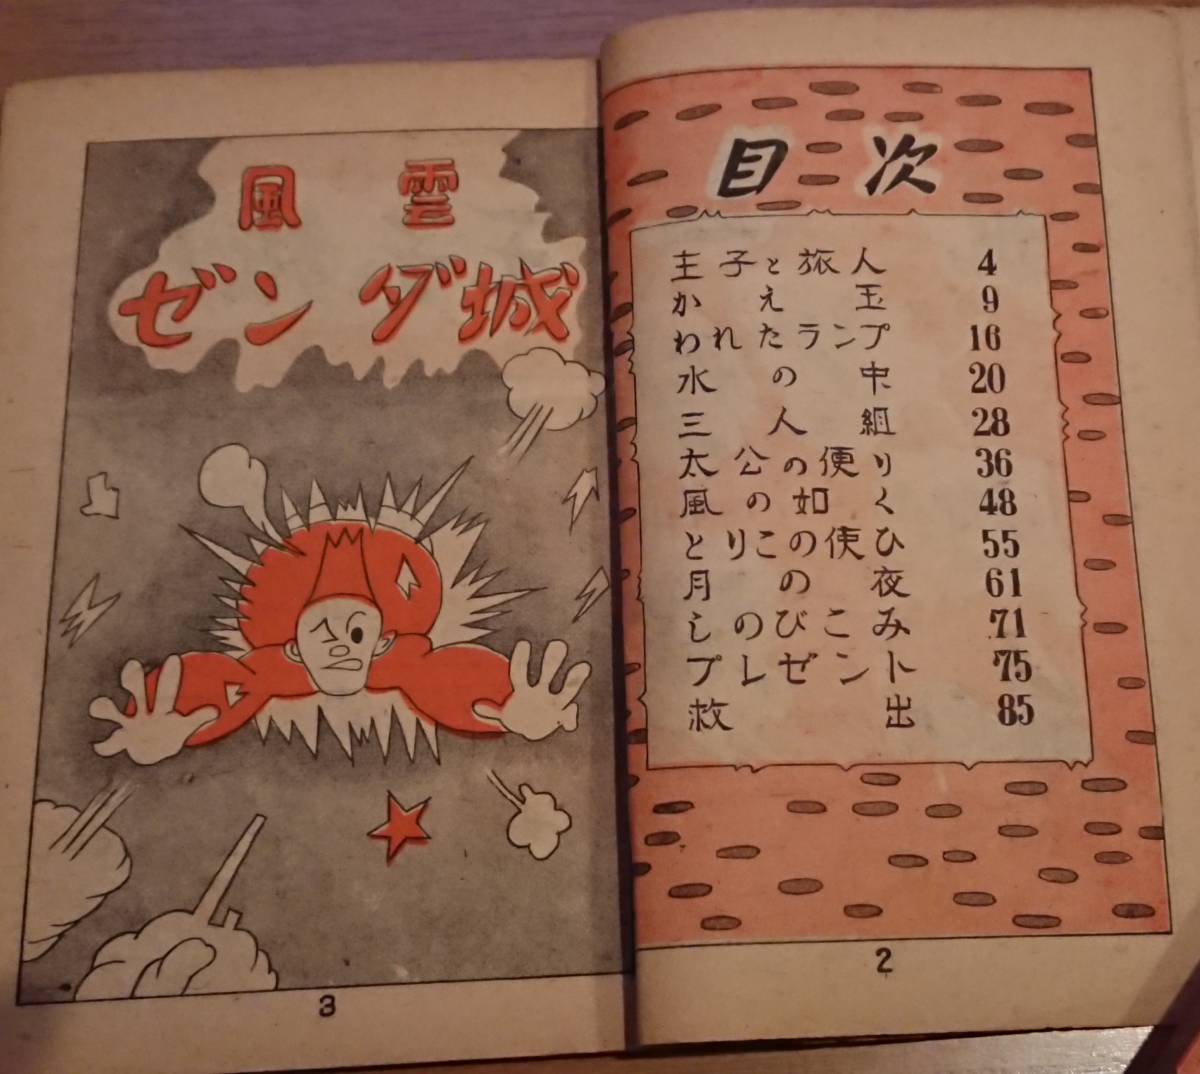 目次
王子と旅人 4
かえ玉 9
われたランプ 16
水の中 20
三人組 28
太公の便り 36
風の如く 48
とりこの使ひ 55
月の夜 61
しのびこみ 71
プレゼント 75
救出 85
2
風雲
ゼンダ城
3